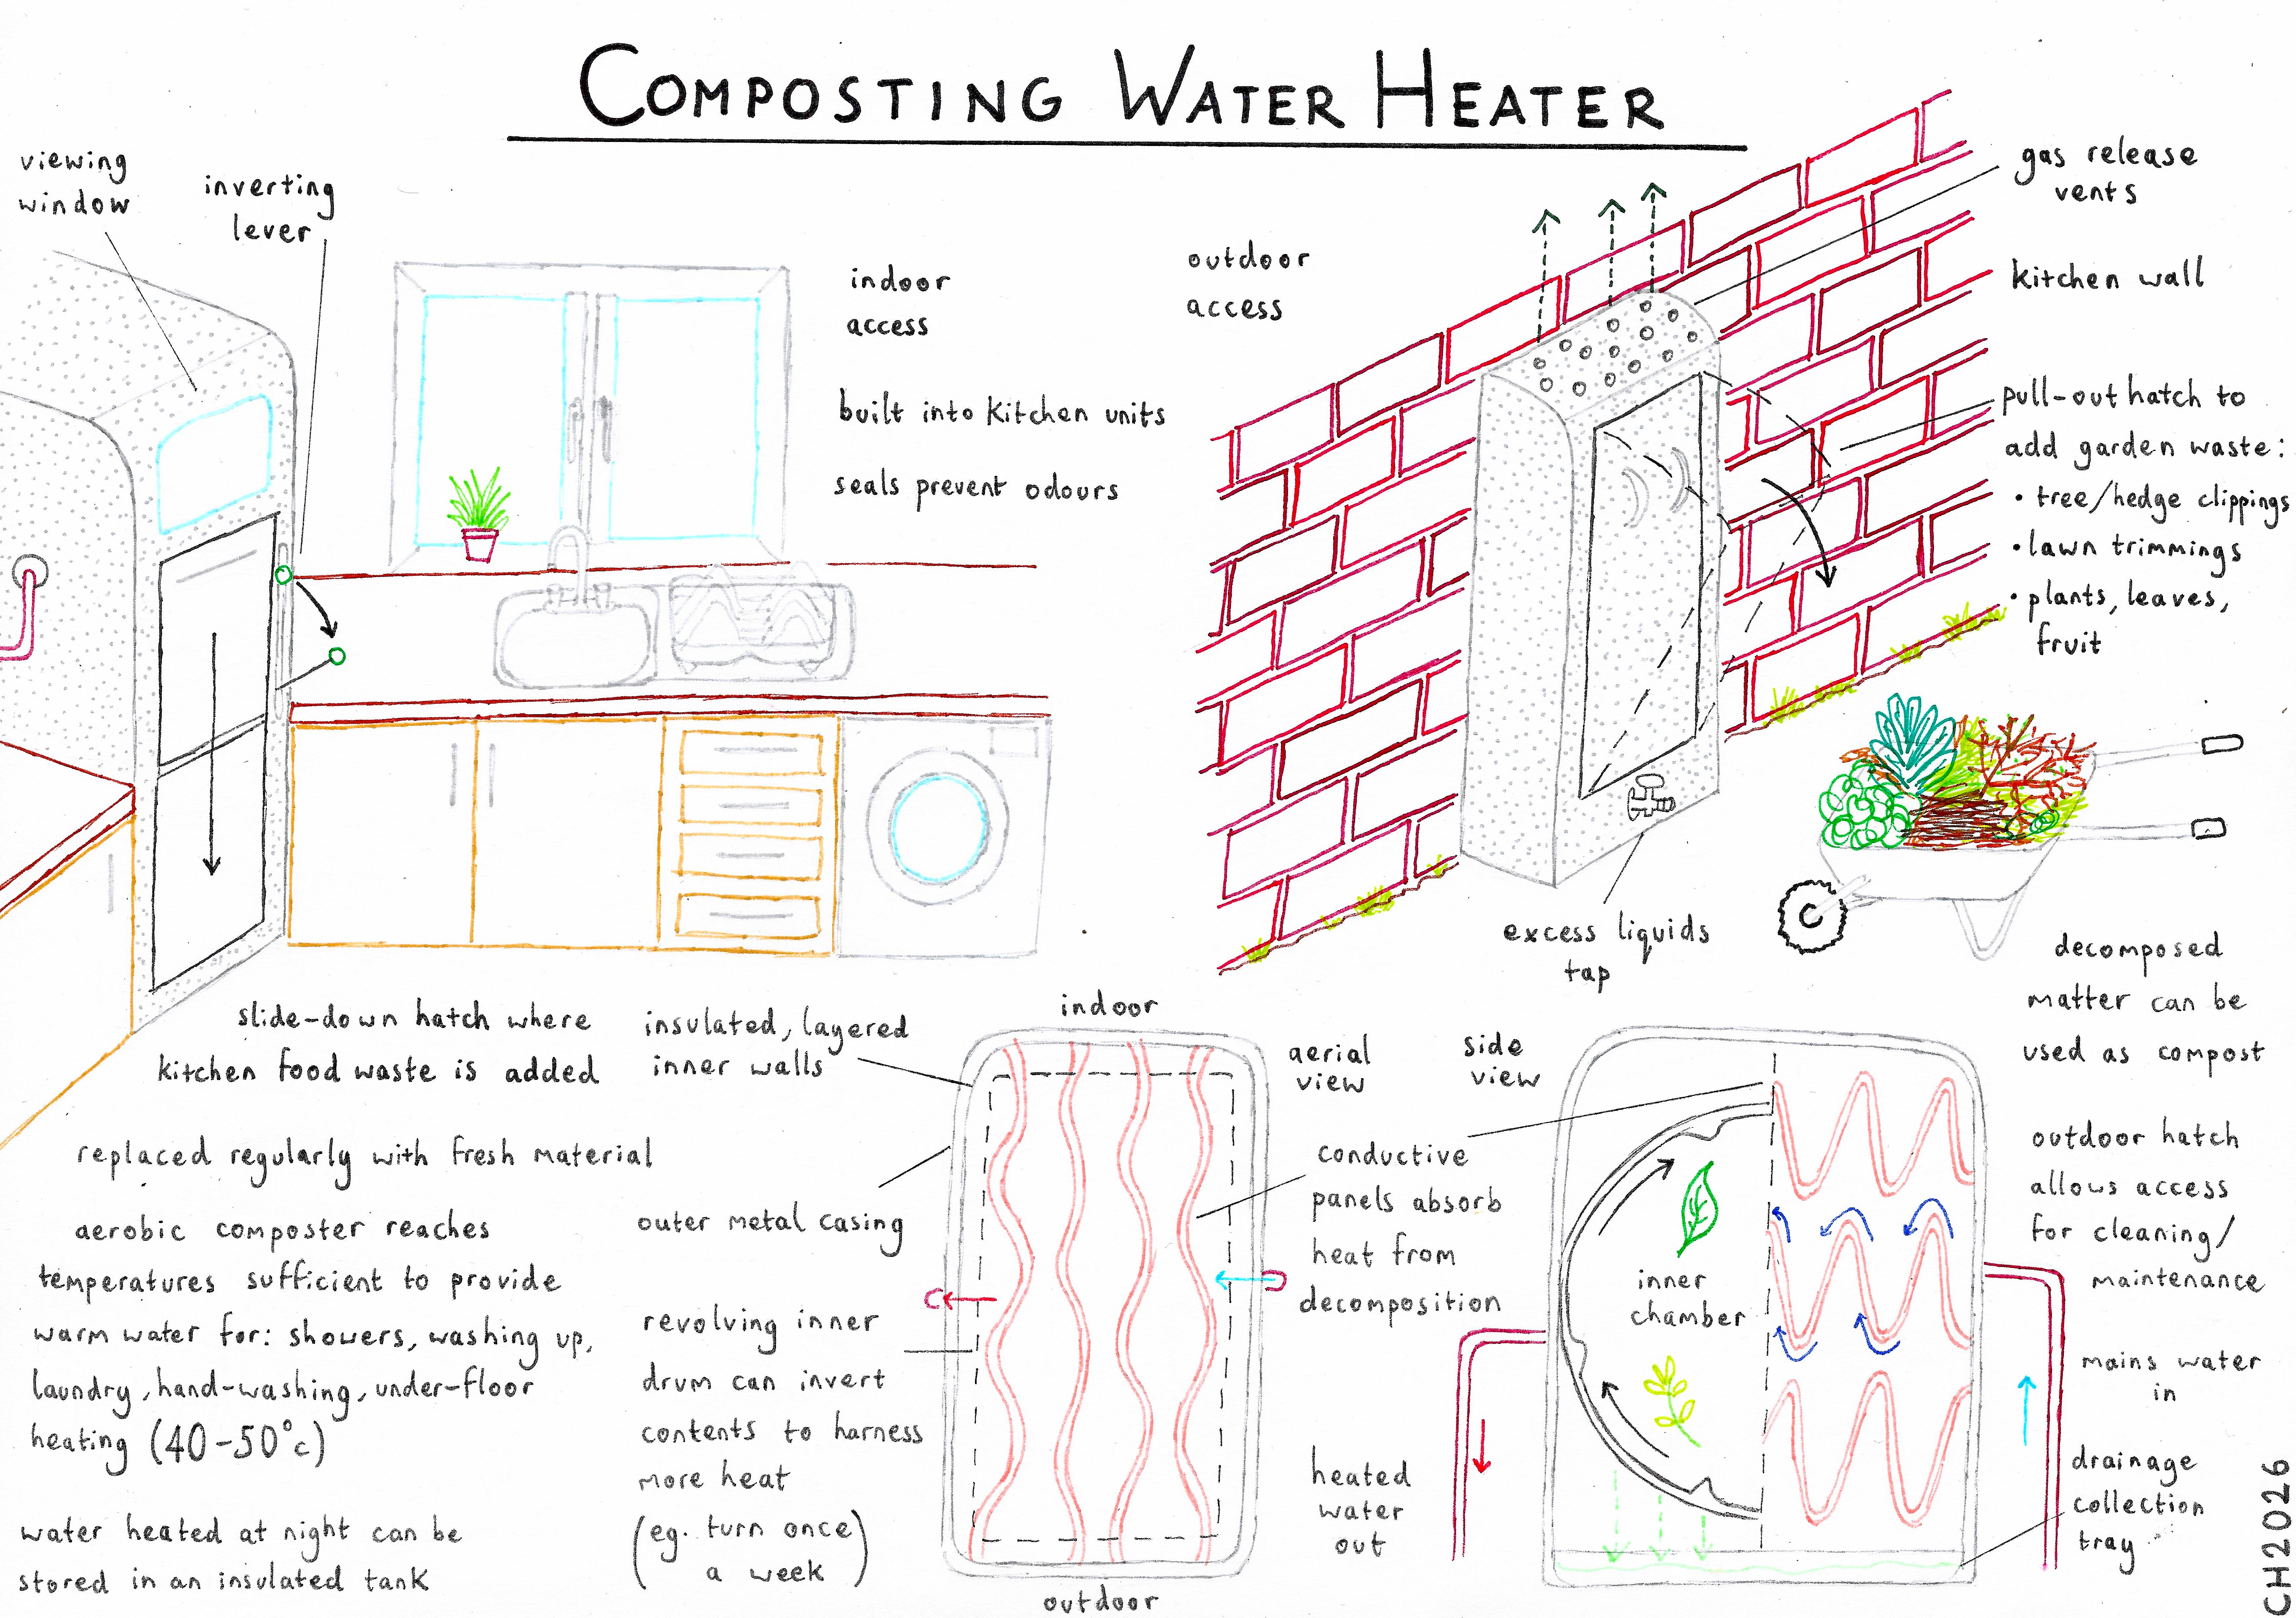 COMPOSTING WATER HEATER
viewing
window
inverting
lever
indoor
access
built into kitchen units
seals prevent odours
outdoor
access
gas release
vents
kitchen wall
pull-out hatch to
add garden waste:
• tree/hedge clippings
• lawn trimmings
• plants, leaves,
fruit
excess liquids
tap
decomposed
matter can be
used as compost
slide-down hatch where
kitchen food waste is added
replaced regularly with fresh material
aerobic composter reaches
temperatures sufficient to provide
warm water for: showers, washing up,
laundry, hand-washing, under-floor
heating (40-50°c)
water heated at night can be
stored in an insulated tank
insulated, layered
inner walls
outer metal casing
revolving inner
drum can invert
contents to harness
more heat
(eg. turn once
a week)
indoor
outdoor
aerial
view
side
view
conductive
panels absorb
heat from
decomposition
inner
chamber
heated
water
out
outdoor hatch
allows access
for cleaning/
maintenance
mains water
in
drainage
collection
tray
CH2026